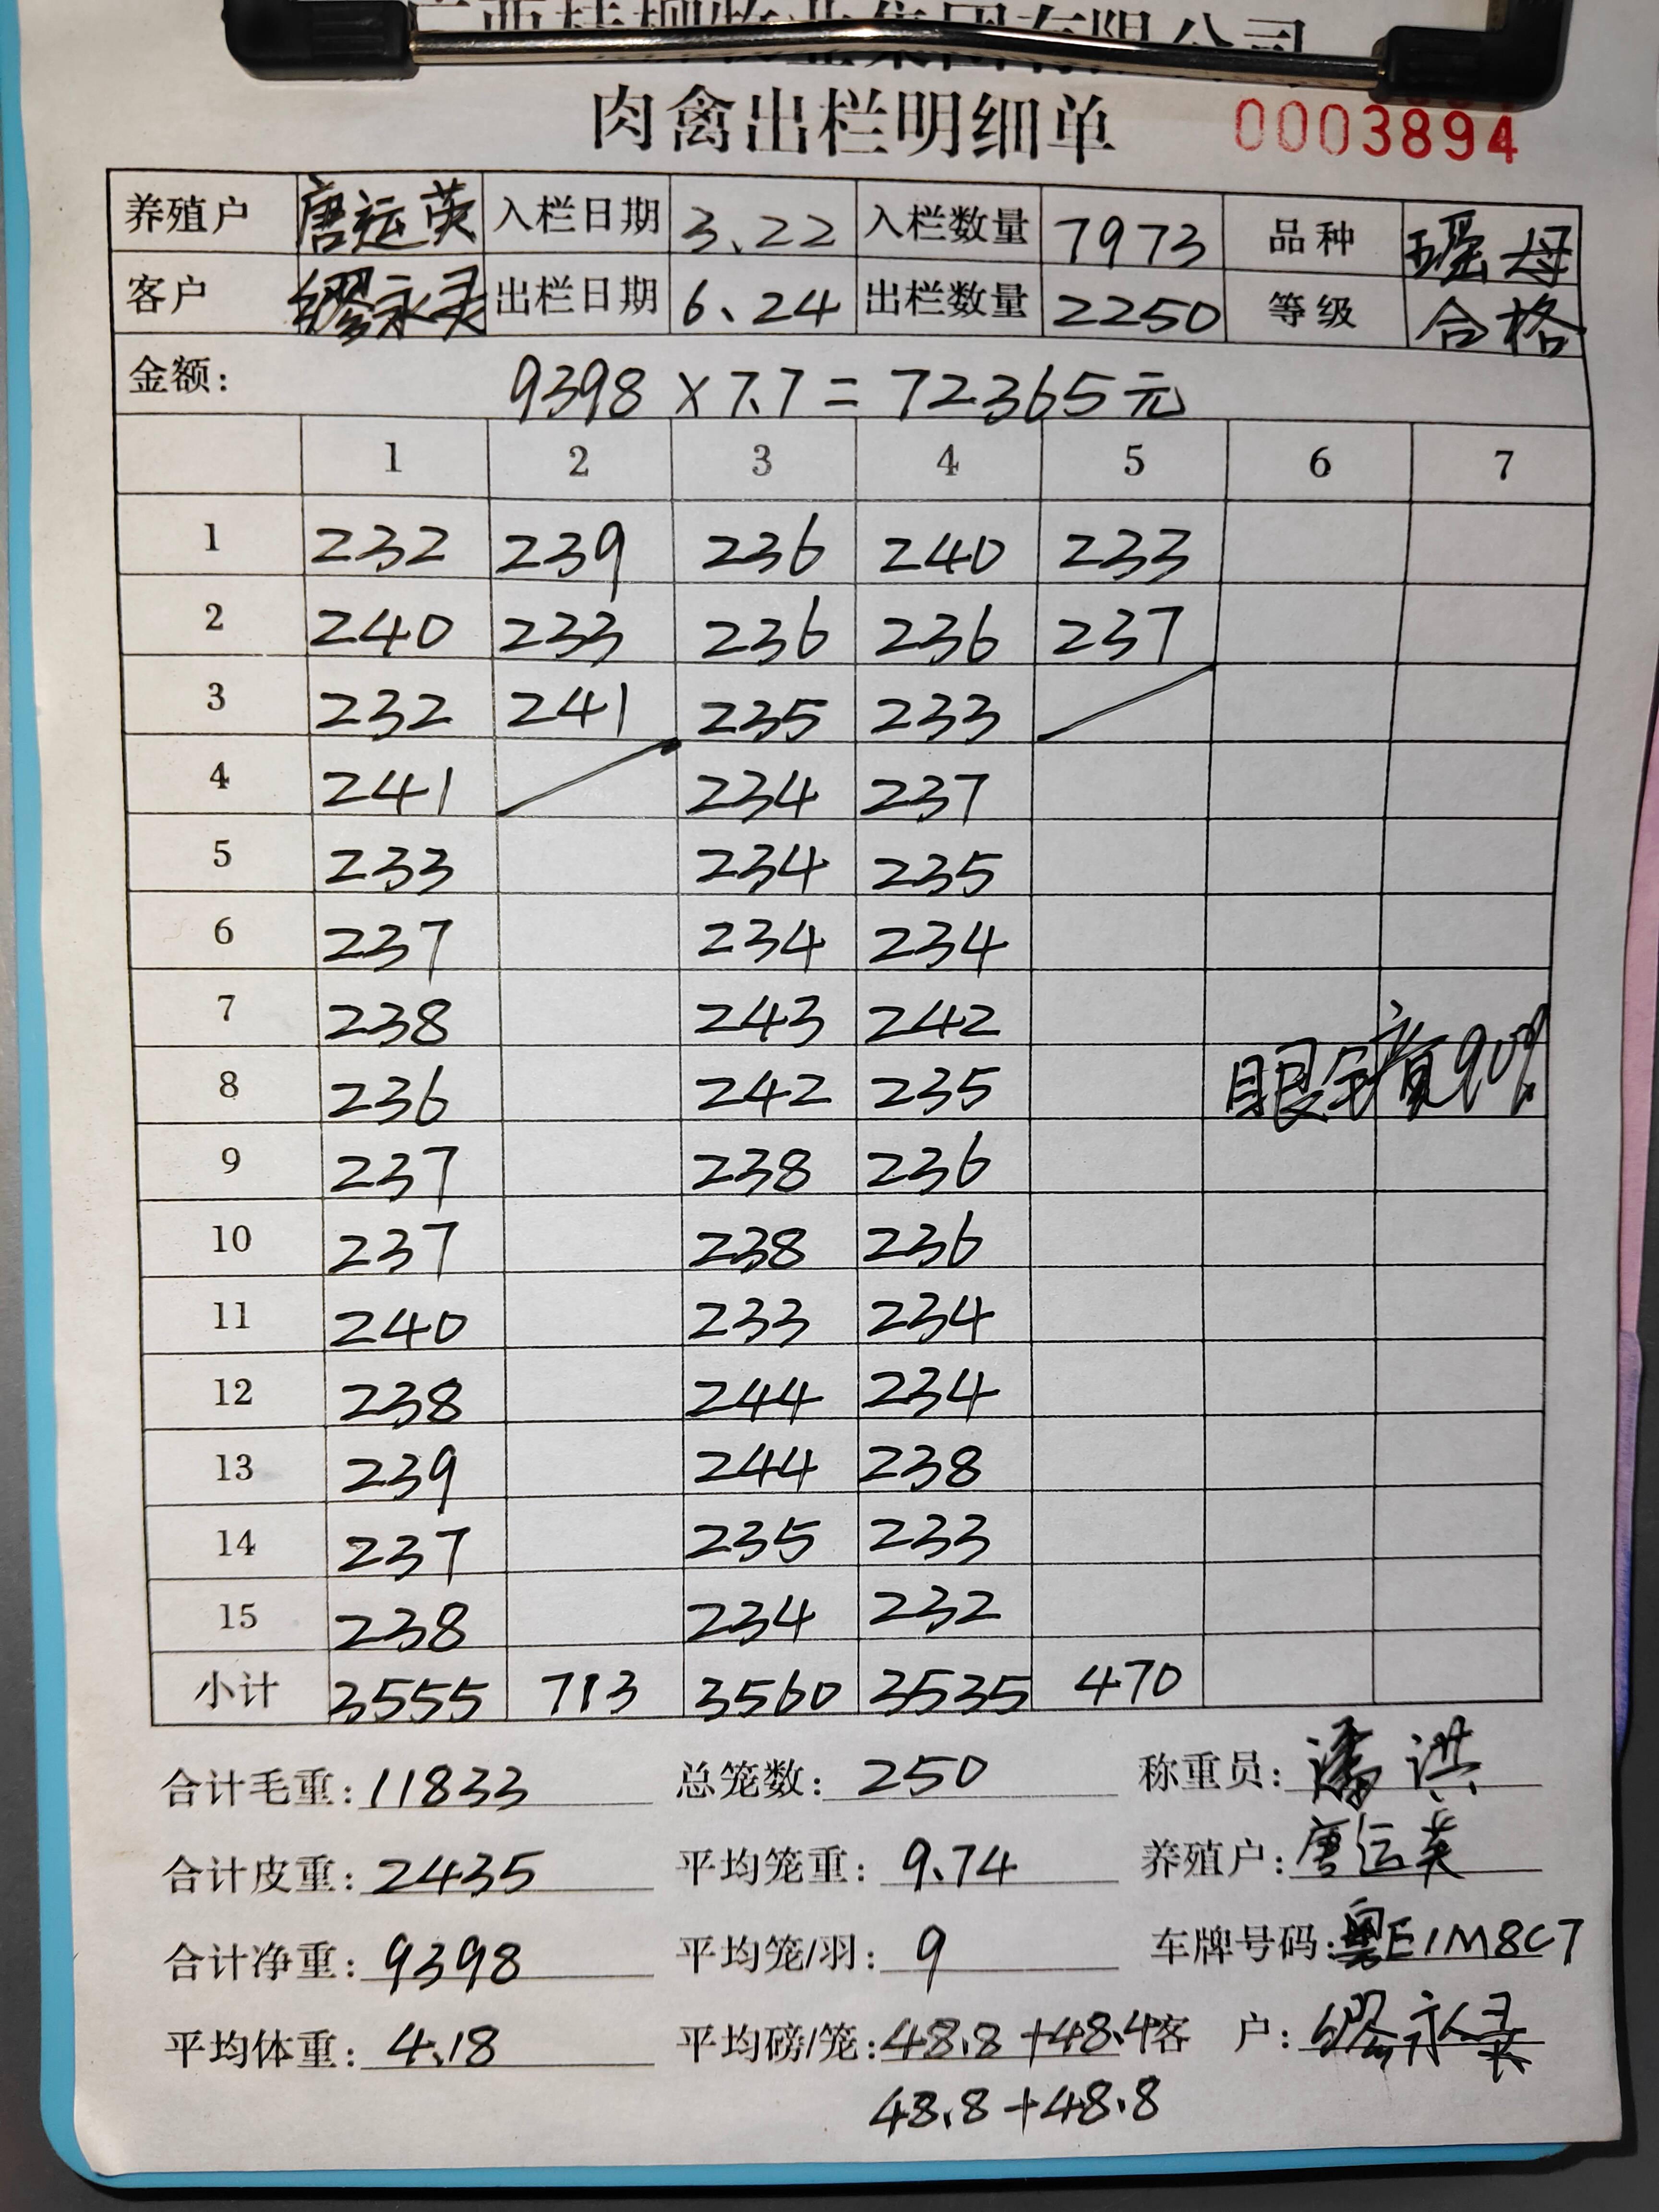 肉禽出栏明细单 0003894
养殖户 唐运英 入栏日期 3.22 入栏数量 7973 品种 瑶母
客户 缪永录 出栏日期 6.24 出栏数量 2250 等级 合格
金额: 9398 × 7.7 = 72365元
1 2 3 4 5 6 7
1 232 239 236 240 233
2 240 233 236 236 237
3 232 241 235 233
4 241 234 237
5 233 234 235
6 237 234 234
7 238 243 242
8 236 242 235 眼 90%
9 237 238 236
10 237 238 236
11 240 233 234
12 238 244 234
13 239 244 238
14 237 235 233
15 238 234 232
小计 3555 713 3560 3535 470
合计毛重: 11833 总笼数: 250 称重员: 潘洪
合计皮重: 2435 平均笼重: 9.74 养殖户: 唐运英
合计净重: 9398 平均笼/羽: 9 车牌号码: 粤E1M8C7
平均体重: 4.18 平均磅/笼: 48.8+48.4 客 户: 缪永录
48.8+48.8